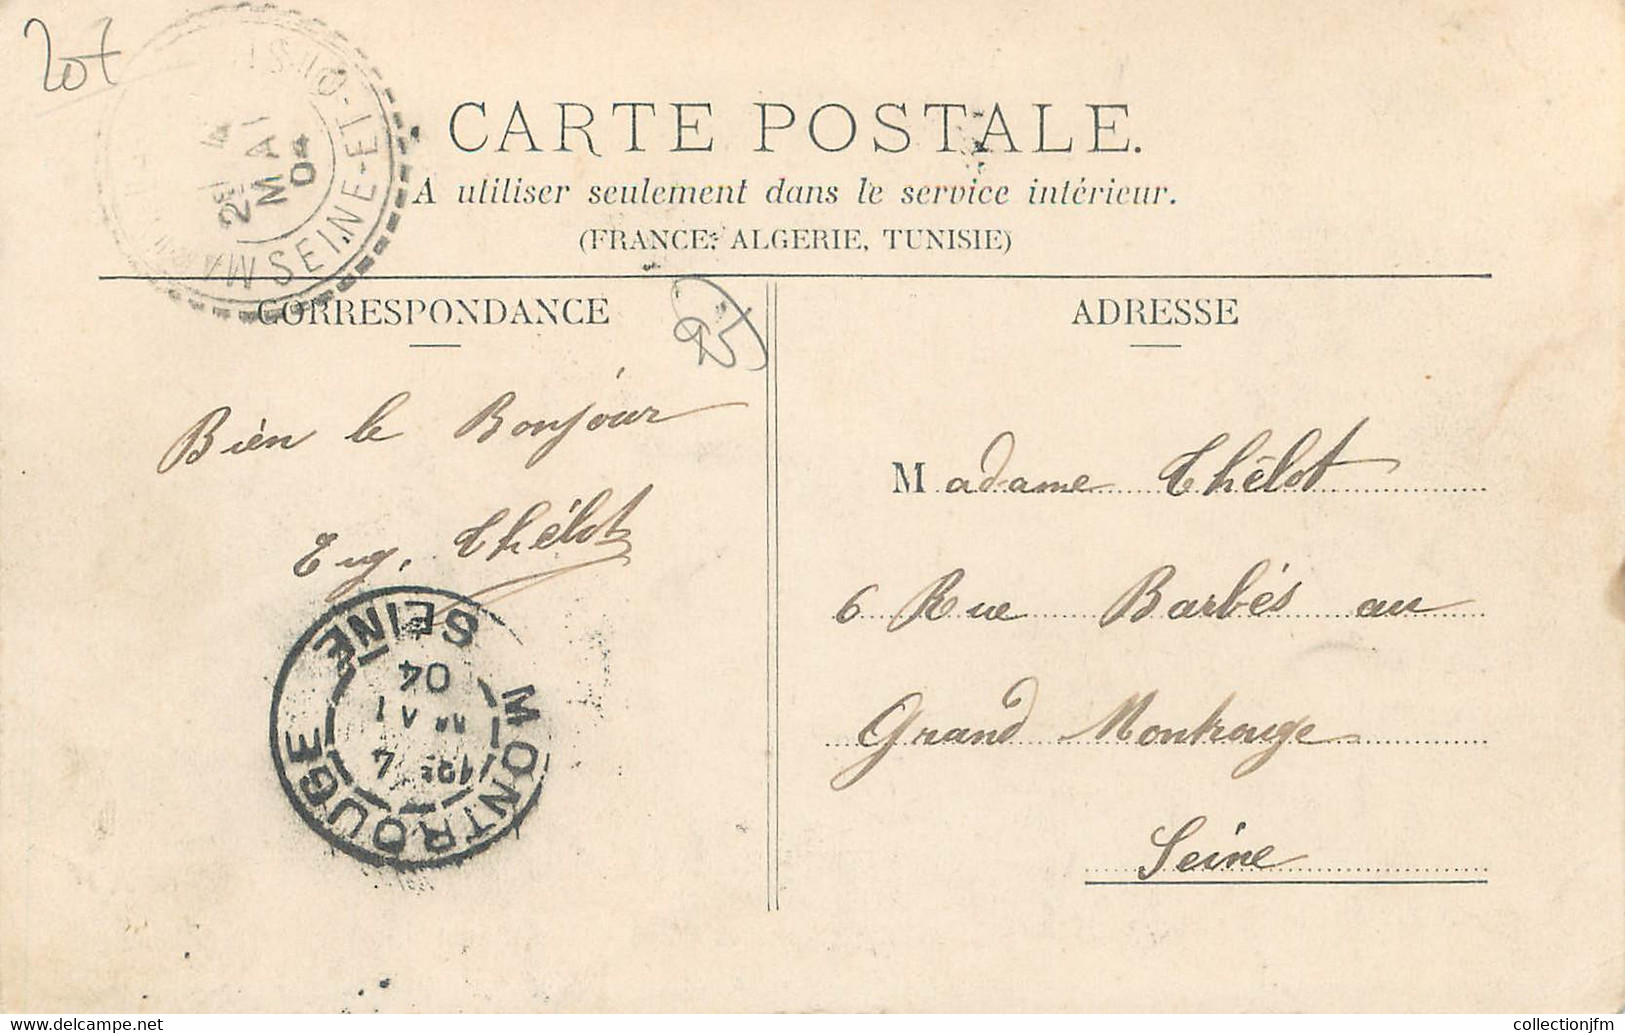 CARTE POSTALE.
A utiliser seulement dans le service intérieur.
(FRANCE, ALGERIE, TUNISIE)
SEINE-ET-OISE
MAI
04
CORRESPONDANCE
ADRESSE
Bien le Bonjour
Eug. Thélot
Madame Thélot
6 Rue Barbés au
Grand Montrouge
Seine
MONTROUGE
SEINE
4
MAI
04
collectionjfm